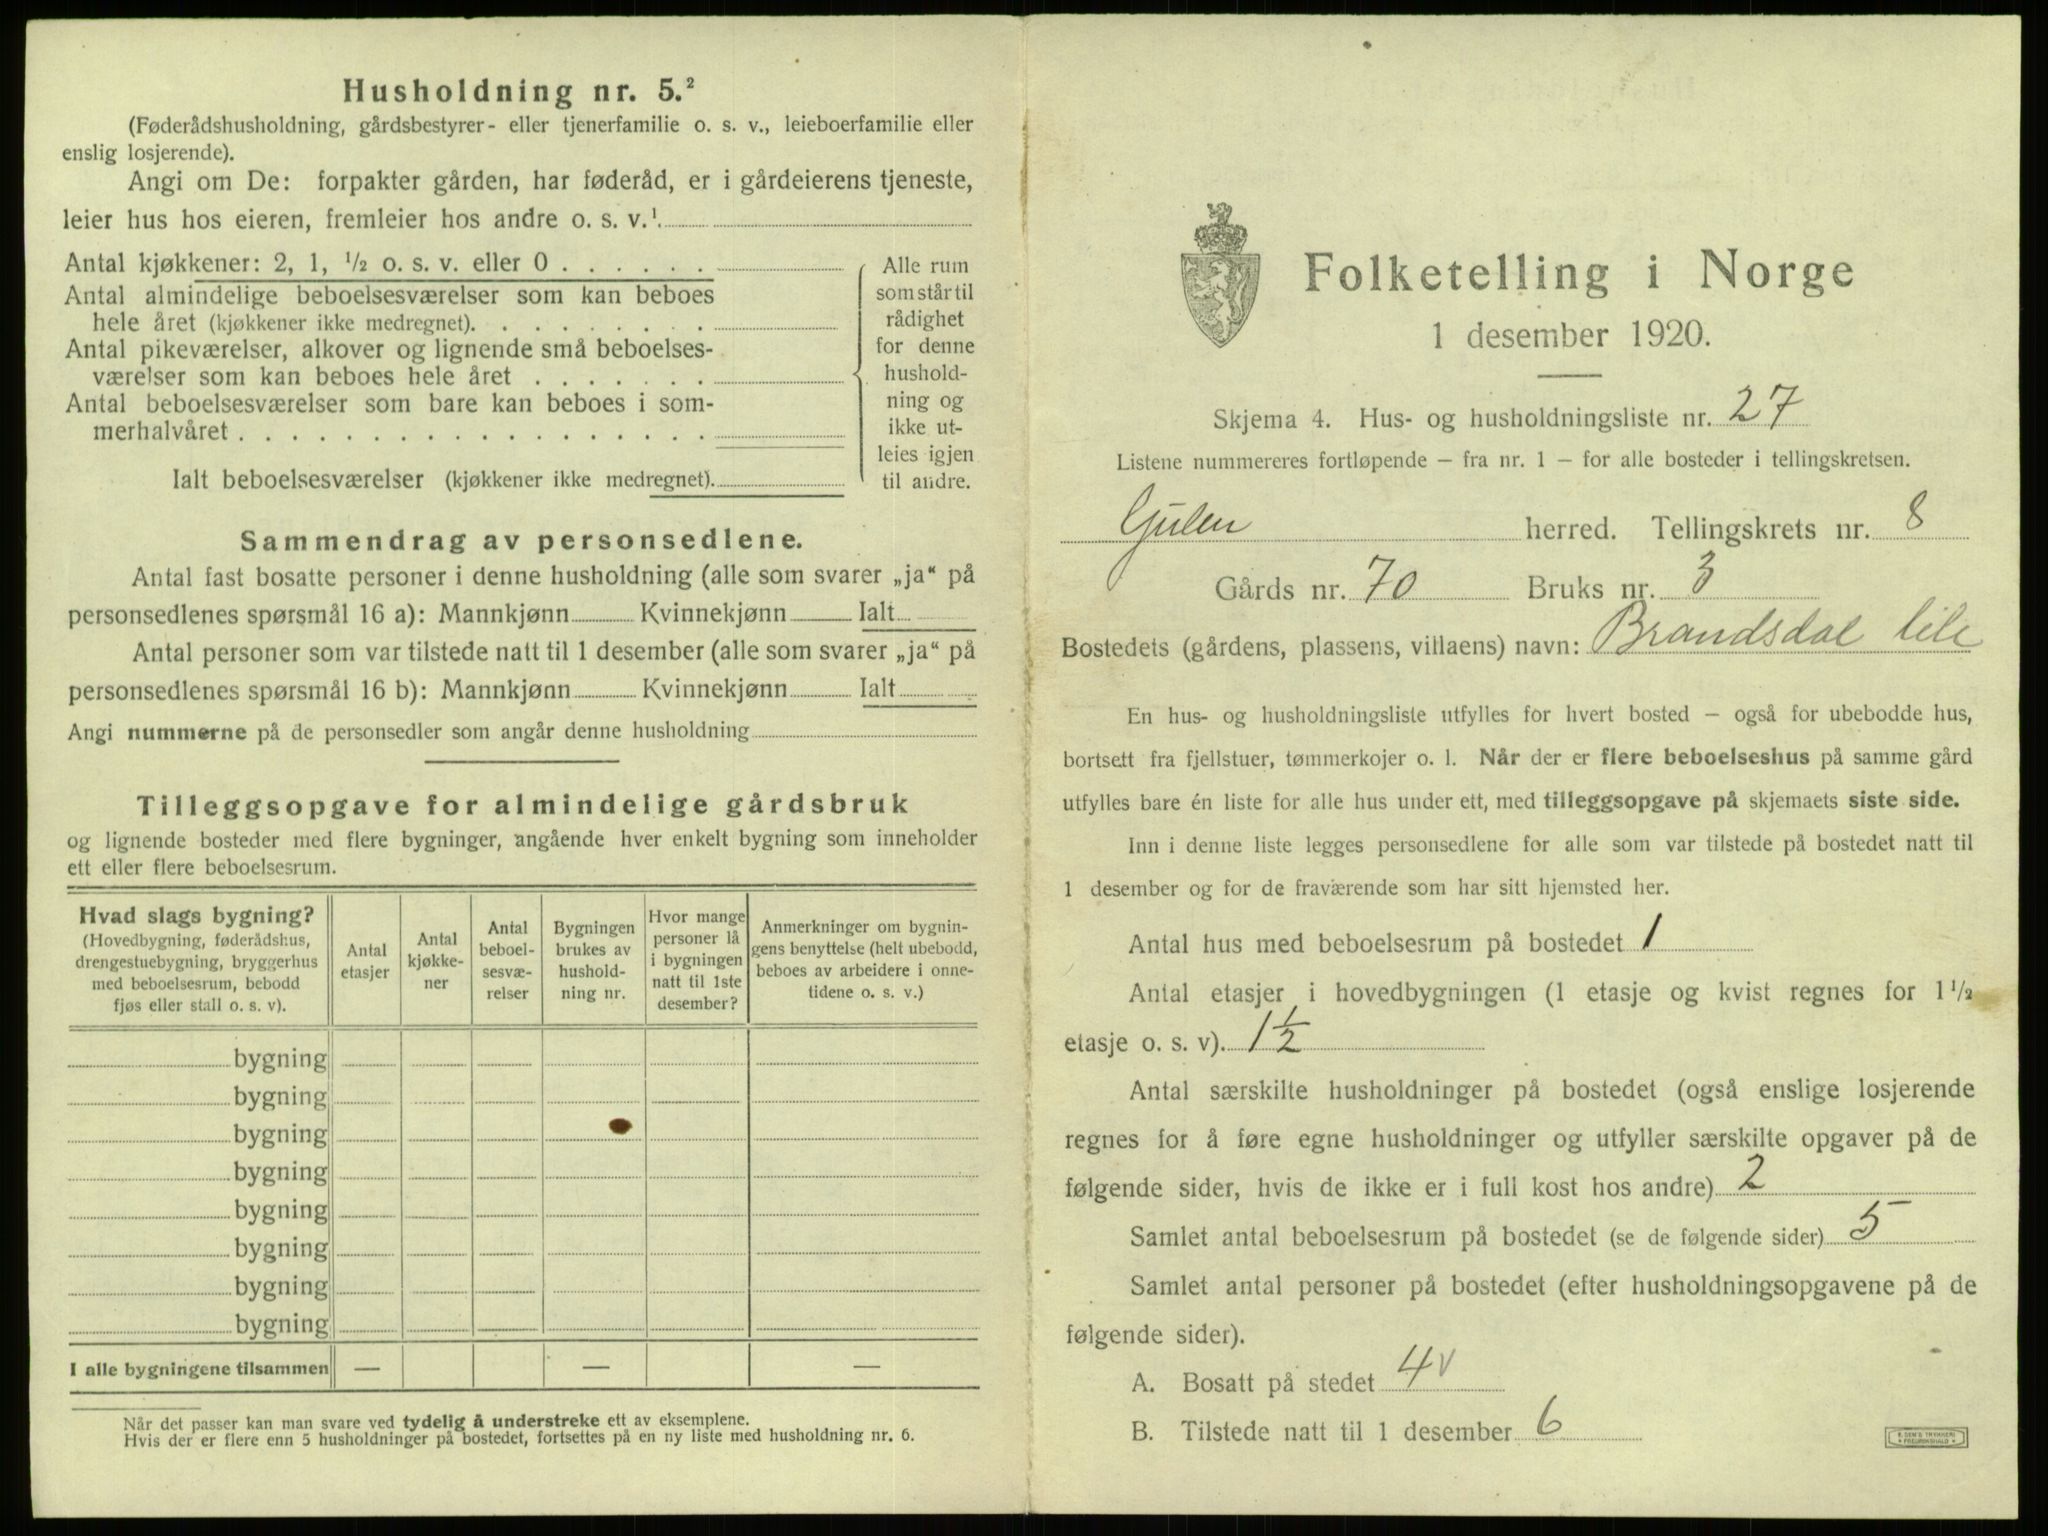 Husholdning nr. 5.²
(Føderådshusholdning, gårdsbestyrer- eller tjenerfamilie o. s. v., leieboerfamilie eller
enslig losjerende).
Angi om De: forpakter gården, har føderåd, er i gårdeierens tjeneste,
leier hus hos eieren, fremleier hos andre o. s. v.¹
Antal kjøkkener: 2, 1, ½ o. s. v. eller 0 . . . . . .
Antal almindelige beboelsesværelser som kan beboes
hele året (kjøkkener ikke medregnet). . . . . . . . .
Antal pikeværelser, alkover og lignende små beboelses-
værelser som kan beboes hele året . . . . . . .
Antal beboelsesværelser som bare kan beboes i som-
merhalvåret . . . . . . . . . . . . . . . . . .
Ialt beboelsesværelser (kjøkkener ikke medregnet).
Alle rum
som står til
rådighet
for denne
hushold-
ning og
ikke ut-
leies igjen
til andre.
Sammendrag av personsedlene.
Antal fast bosatte personer i denne husholdning (alle som svarer „ja“ på
personsedlenes spørsmål 16 a): Mannkjønn Kvinnekjønn Ialt
Antal personer som var tilstede natt til 1 desember (alle som svarer „ja“ på
personsedlenes spørsmål 16 b): Mannkjønn Kvinnekjønn Ialt
Angi nummerne på de personsedler som angår denne husholdning
Tilleggsopgave for almindelige gårdsbruk
og lignende bosteder med flere bygninger, angående hver enkelt bygning som inneholder
ett eller flere beboelsesrum.
Hvad slags bygning?
(Hovedbygning, føderådshus,
drengestuebygning, bryggerhus
med beboelsesrum, bebodd
fjøs eller stall o. s. v).
Antal
etasjer
Antal
kjøkke-
ner
Antal
beboel-
sesvæ-
relser
Bygningen
brukes av
hushold-
ning nr.
Hvor mange
personer lå
i bygningen
natt til 1ste
desember?
Anmerkninger om bygnin-
gens benyttelse (helt ubebodd,
beboes av arbeidere i onne-
tidene o. s. v.)
bygning
bygning
bygning
bygning
bygning
bygning
bygning
bygning
I alle bygningene tilsammen — — —
Når det passer kan man svare ved tydelig å understreke ett av eksemplene.
Hvis der er flere enn 5 husholdninger på bostedet, fortsettes på en ny liste med husholdning nr. 6.
Folketelling i Norge
1 desember 1920.
Skjema 4. Hus- og husholdningsliste nr. 27
Listene nummereres fortløpende – fra nr. 1 – for alle bosteder i tellingskretsen.
Gulen herred. Tellingskrets nr. 8
Gårds nr. 70 Bruks nr. 3
Bostedets (gårdens, plassens, villaens) navn: Brandsdal lile
En hus- og husholdningsliste utfylles for hvert bosted – også for ubebodde hus,
bortsett fra fjellstuer, tømmerkojer o. l. Når der er flere beboelseshus på samme gård
utfylles bare én liste for alle hus under ett, med tilleggsopgave på skjemaets siste side.
Inn i denne liste legges personsedlene for alle som var tilstede på bostedet natt til
1 desember og for de fraværende som har sitt hjemsted her.
Antal hus med beboelsesrum på bostedet 1
Antal etasjer i hovedbygningen (1 etasje og kvist regnes for 1½
etasje o. s. v). 1½
Antal særskilte husholdninger på bostedet (også enslige losjerende
regnes for å føre egne husholdninger og utfyller særskilte opgaver på de
følgende sider, hvis de ikke er i full kost hos andre) 2
Samlet antal beboelsesrum på bostedet (se de følgende sider) 5
Samlet antal personer på bostedet (efter husholdningsopgavene på de
følgende sider).
A. Bosatt på stedet 4 v
B. Tilstede natt til 1 desember 6